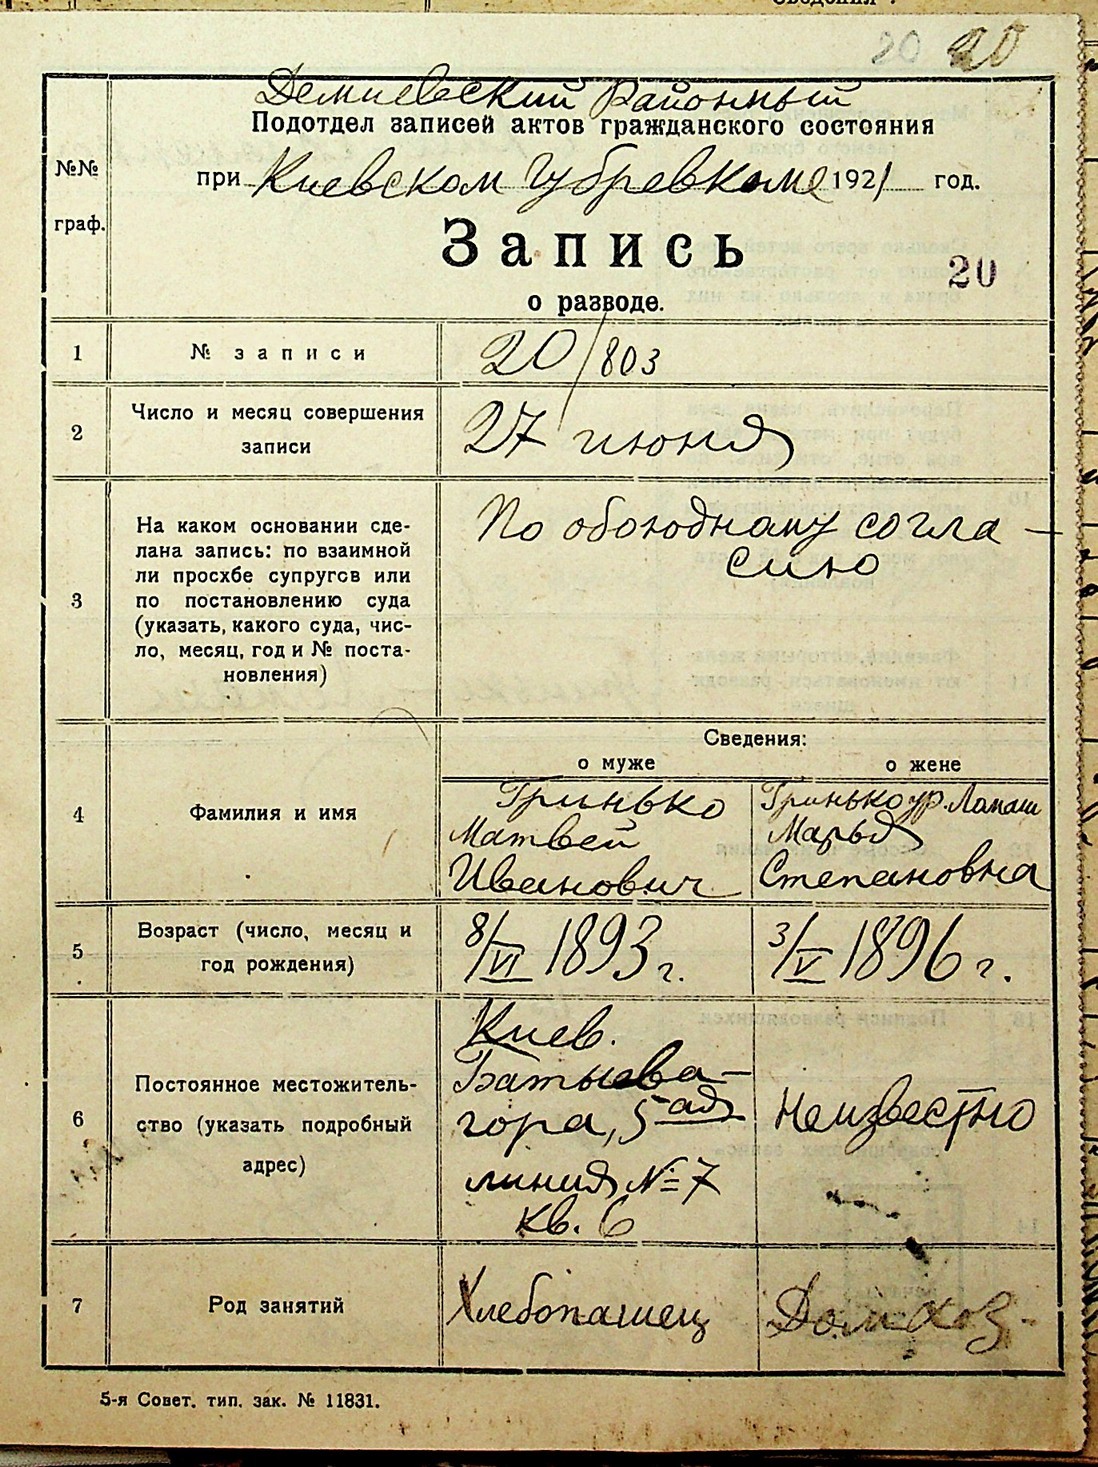 20 20
Демиевский Районный
Подотдел записей актов гражданского состояния
№№
граф.
при Киевском Губревкоме 1921 год.
Запись
20
о разводе.
1
№ записи
20/803
2
Число и месяц совершения
записи
27 июня
3
На каком основании сде-
лана запись: по взаимной
ли просхбе супругов или
по постановлению суда
(указать, какого суда, чис-
ло, месяц, год и № поста-
новления)
По обоюдному согла-
сию
Сведения:
о муже
о жене
4
Фамилия и имя
Гринько
Матвей
Иванович
Гринько ур. Ламаш
Марья
Степановна
5
Возраст (число, месяц и
год рождения)
8/VI 1893 г.
3/V 1896 г.
6
Постоянное местожитель-
ство (указать подробный
адрес)
Киев.
Батыева-
гора, 5-ая
линия № 7
кв. 6
Неизвестно
7
Род занятий
Хлебопашец
Дом. хоз.
5-я Совет. тип. зак. № 11831.